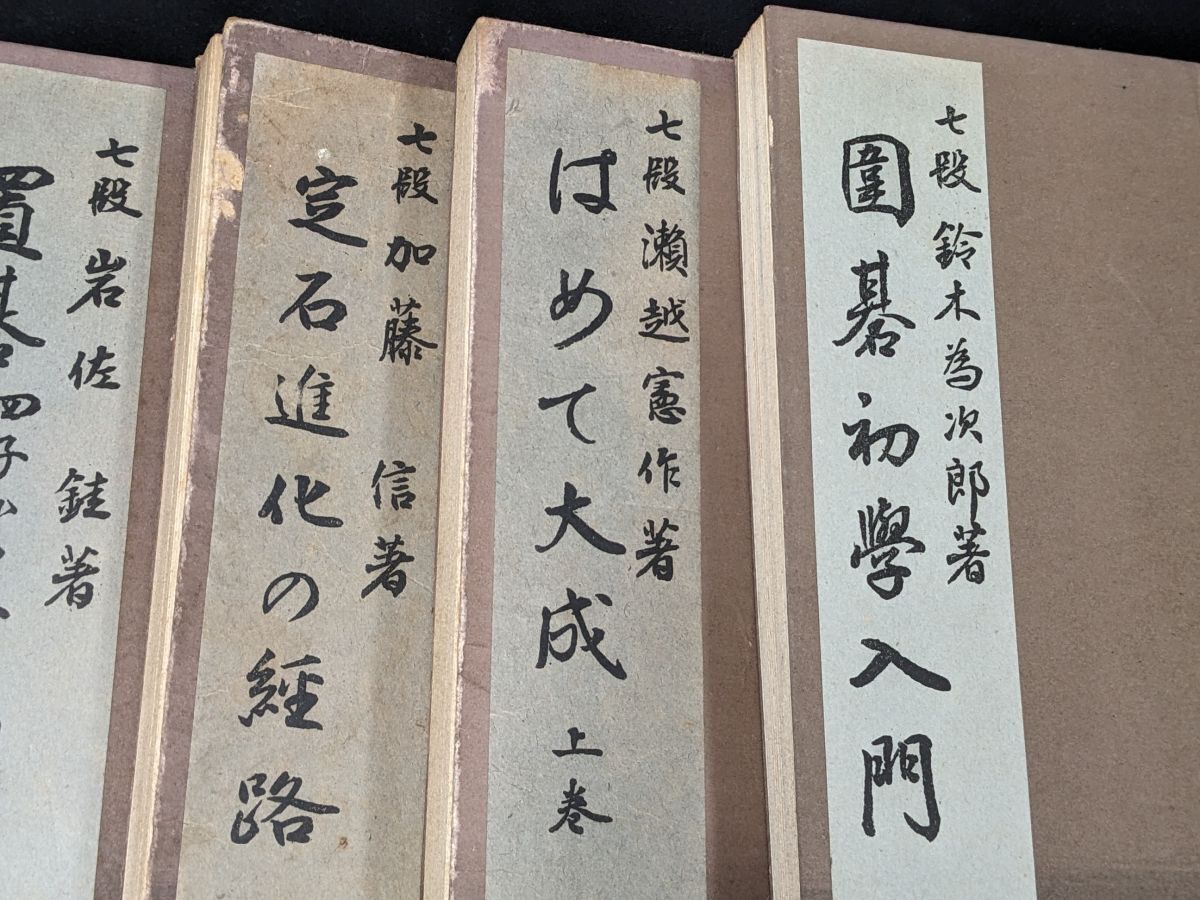 七段 鈴木為次郎著
圍碁初學入門
七段 瀬越憲作著
はめて大成 上巻
七段 加藤 信著
定石進化の經路
七段 岩佐 銈著
置碁四子